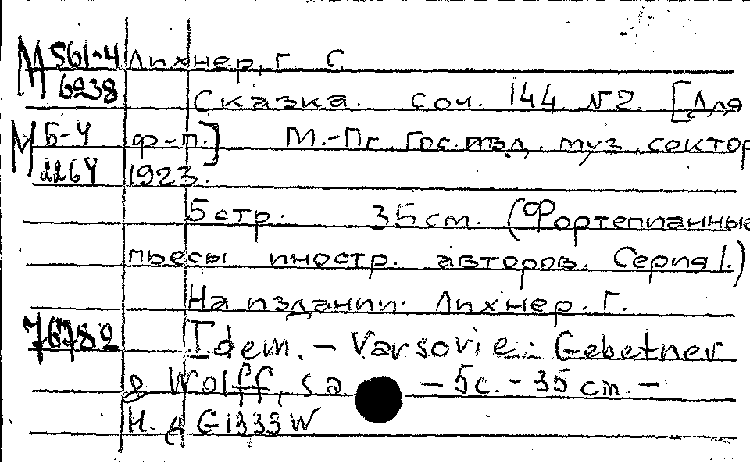 М 561-4 Лихнер, Г. С.
6938
Сказка. Соч. 144 №2. [Для
М Б-4 ф-п.] М.-Пг. Гос.изд. муз. сектор
2264 1923.
5 стр. 35 см. (Фортепианные
пьесы иностр. авторов. Серия I.)
На издании: Лихнер. Г.
76782 Idem. – Varsovie: Gebetner
& Wolff, s.a. – 5с. – 35 cm. –
Н. д. G 1333 W